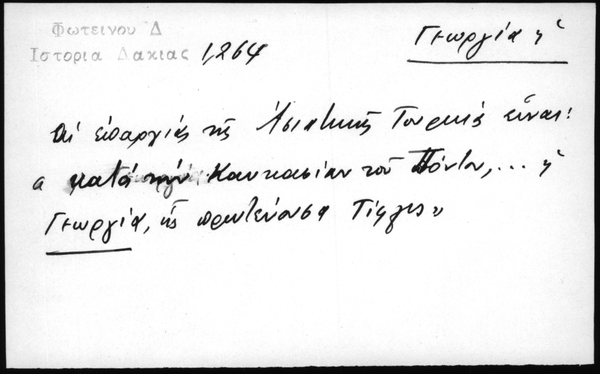 Φωτεινου Δ
Ιστορια Δακιας 1,264
Γεωργία ἡ
αἱ ἐπαργίας τῆς Ἀσιατικῆς Τουρκίας εἶναι:
α κατὰ τὴν Καυκασίαν τοῦ Πόντου, ... ἡ
Γεωργία, ἧς πρωτεύουσα Τίφλις "